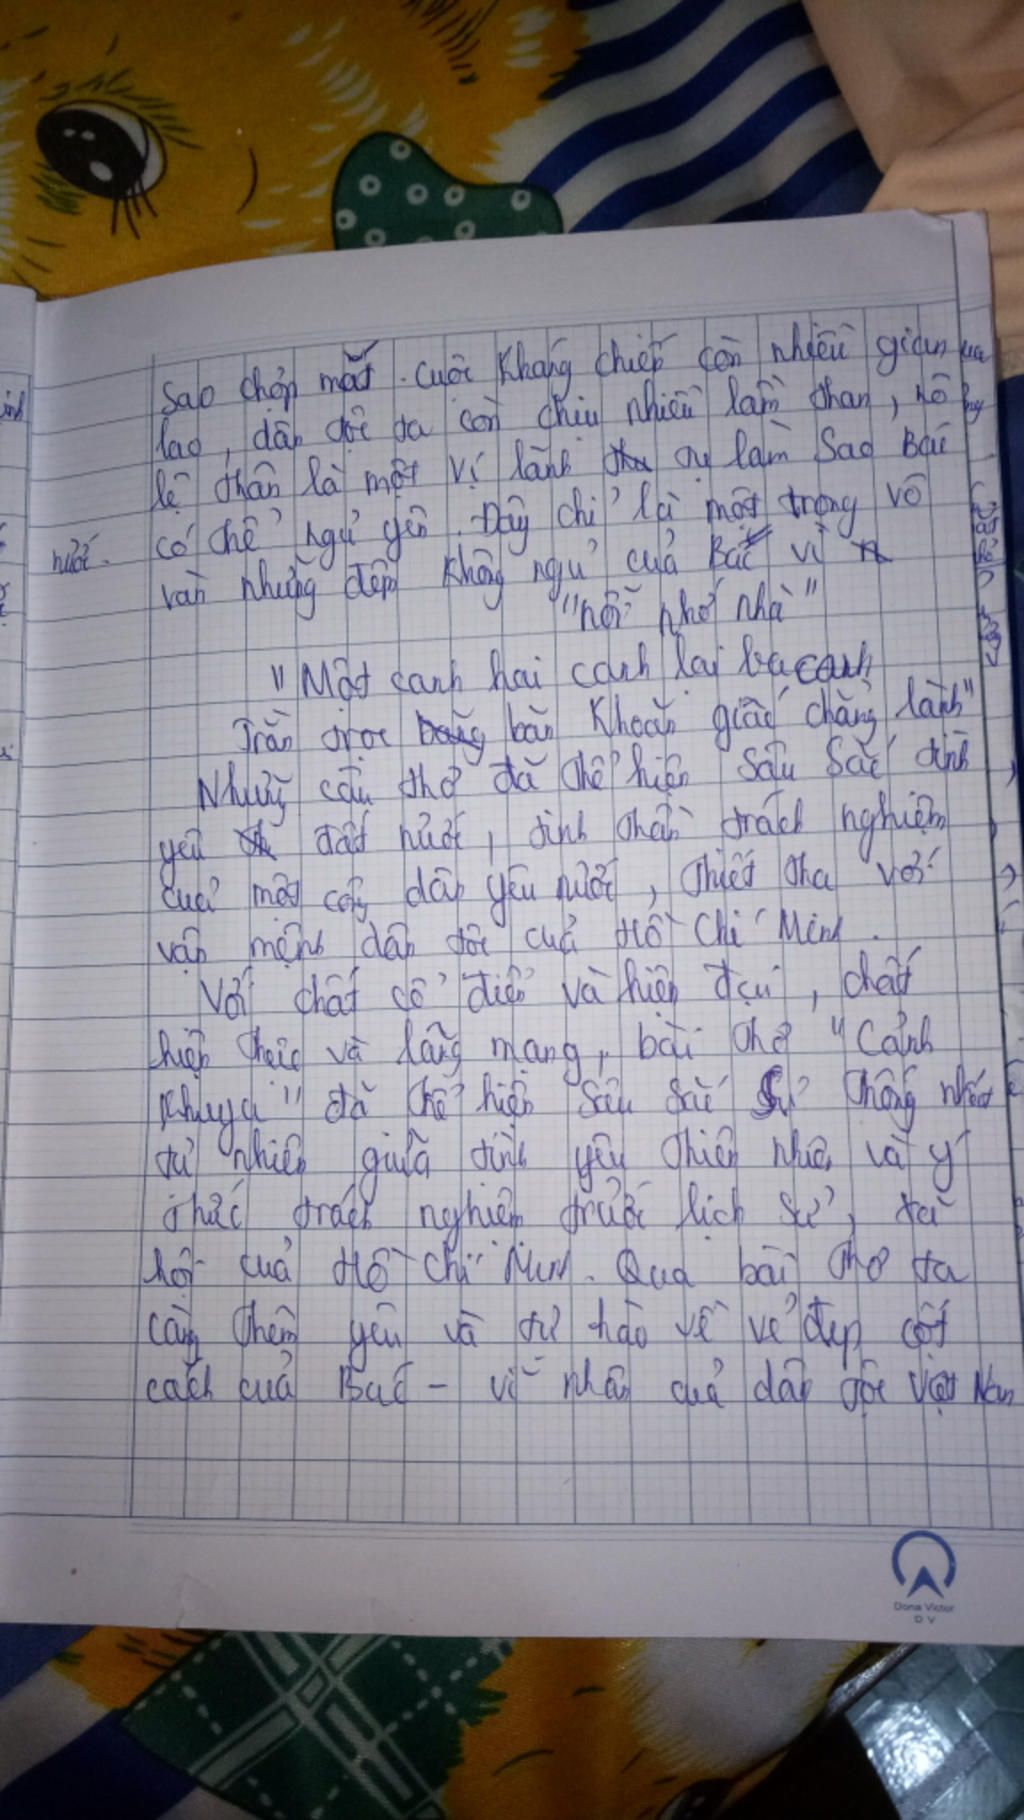 sao chợp mắt. Cuộc kháng chiến còn nhiều gian
lao, dân tộc ta còn chịu nhiều lầm than, nô
lệ thân là một vị lãnh tụ làm sao Bác
có thể ngủ yên. Đây chỉ là một trong vô
vàn những đêm không ngủ của Bác vì
"nỗi nhớ nhà"
"Một canh hai canh lại ba canh
Trằn trọc băn khoăn giấc chẳng lành"
Những câu thơ đã thể hiện sâu sắc tình
yêu đất nước, tinh thần trách nghiệm
của một công dân yêu nước, thiết tha với
vận mệnh dân tộc của Hồ Chí Minh.
Với chất cổ điển và hiện đại, chất
hiện thực và lãng mạng, bài thơ "Cảnh
khuya" đã thể hiện sâu sắc sự thống nhất
tự nhiên giữa tình yêu thiên nhiên và ý
thức trách nghiệm trước lịch sử, xã
hội của Hồ Chí Minh. Qua bài thơ ta
càng thêm yêu và tự hào về vẻ đẹp cốt
cách của Bác - vĩ nhân của dân tộc Việt Nam
nước.
Dona Victor
D V